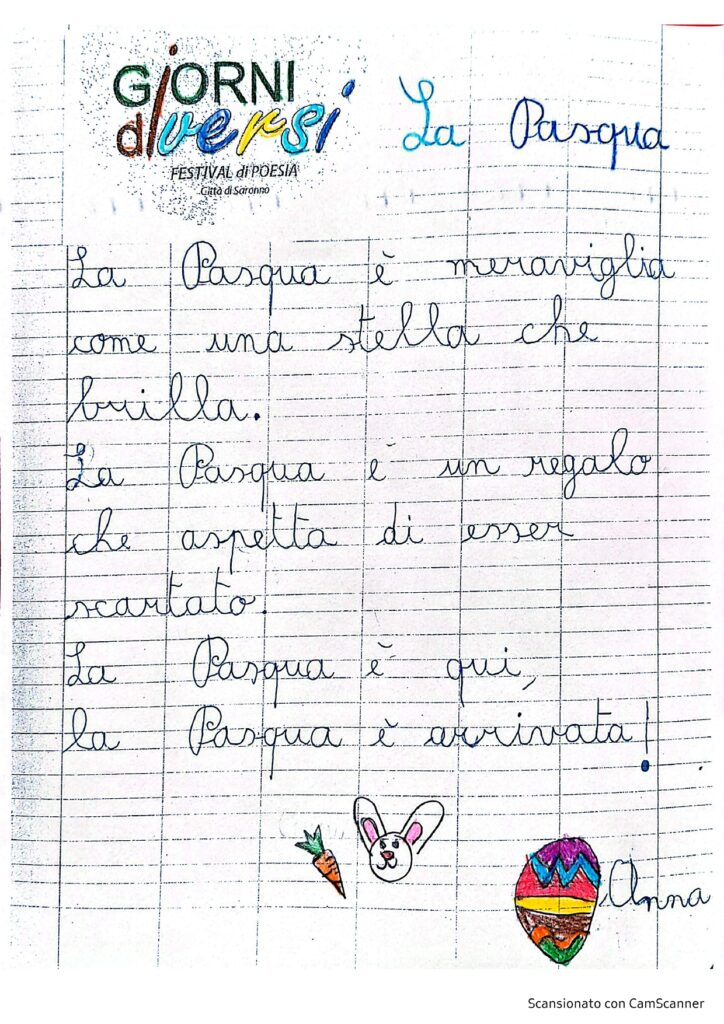 GiORNI
diversi
FESTIVAL di POESIA
Città di Saronno
La Pasqua
La Pasqua è meraviglia
come una stella che
brilla.
La Pasqua è un regalo
che aspetta di esser
scartato.
La Pasqua è qui,
la Pasqua è arrivata!
Anna
Scansionato con CamScanner